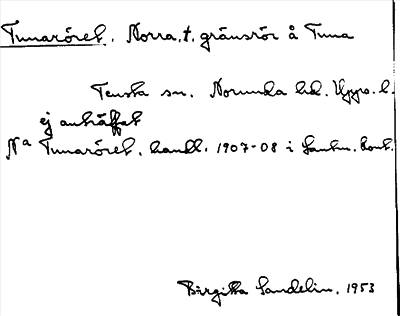 Tunaröret. Norra, t. gränsrör å Tuna
Tensta sn. Norunda hd. Upps. l.
ej anträffat
Na Tunaröret. handl. 1907-08 i Lantm. kont.
Birgitta Sandelin. 1953